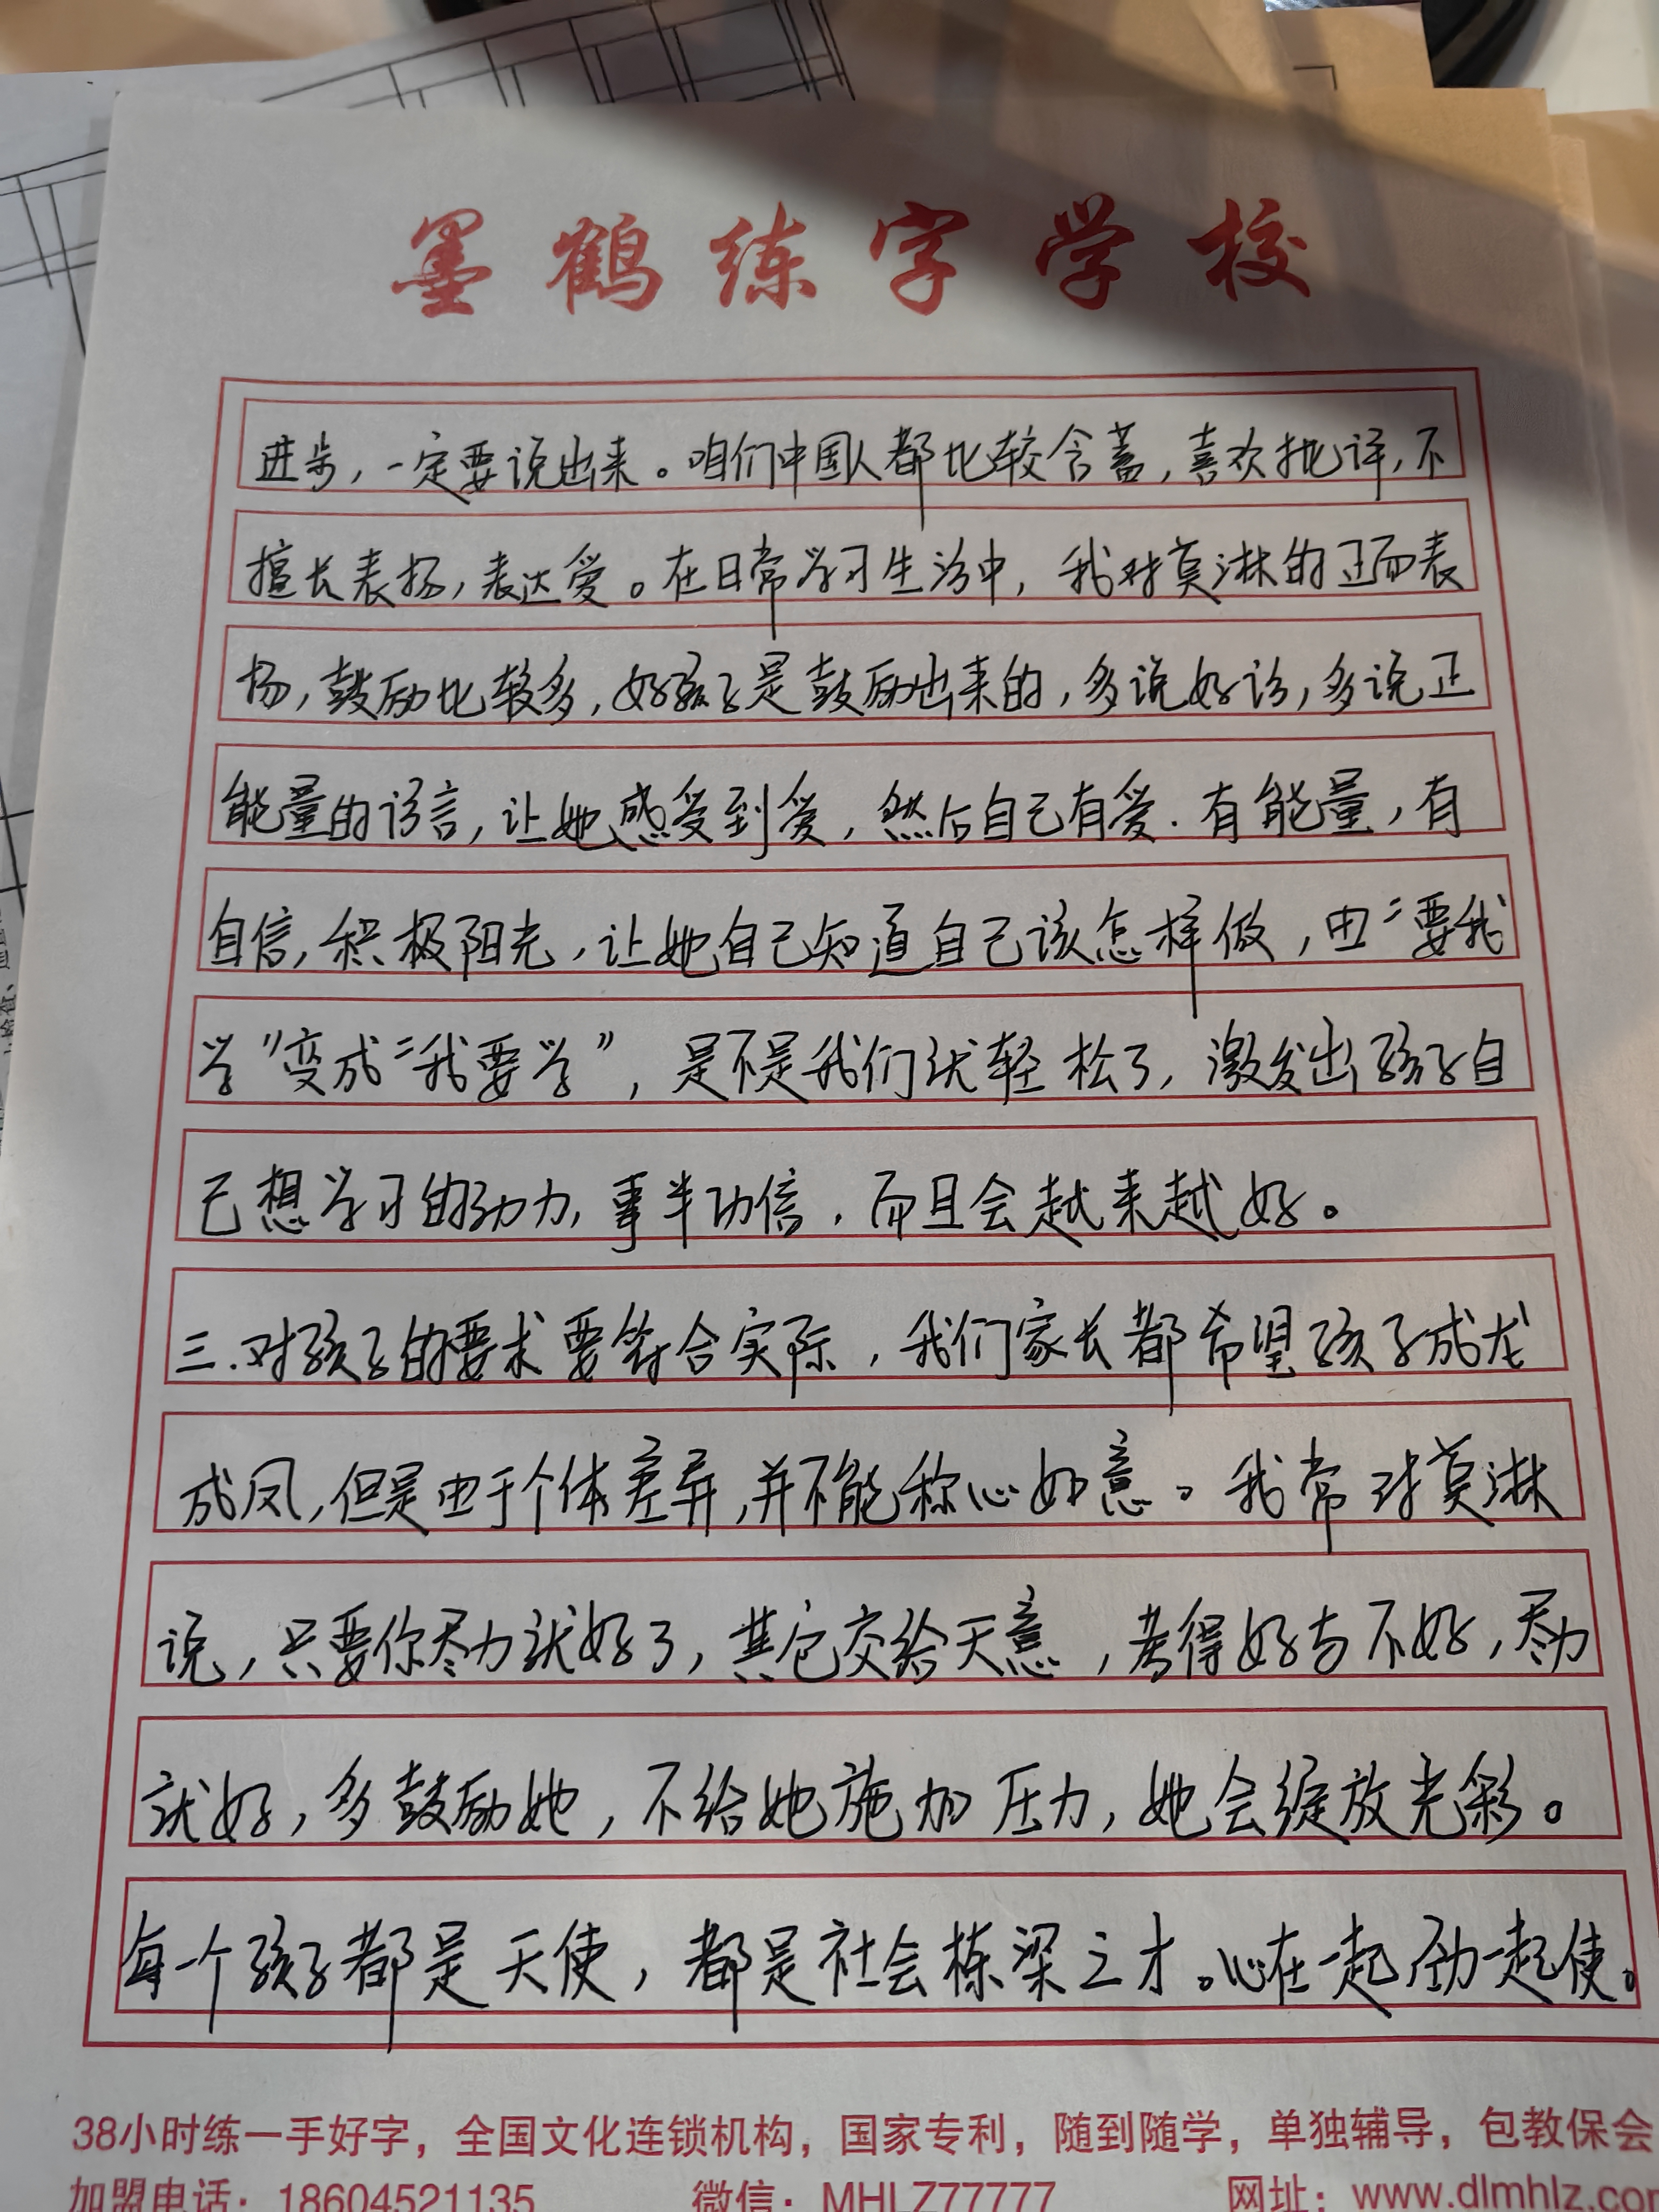 墨鹤练字学校
进步，一定要说出来。咱们中国人都比较含蓄，喜欢批评，不
擅长表扬，表达爱。在日常学习生活中，我对莫淋的正面表
扬，鼓励比较多，好孩子是鼓励出来的，多说好话，多说正
能量的语言，让她感受到爱，然后自己有爱.有能量，有
自信，积极阳光，让她自己知道自己该怎样做，由“要我
学”变成“我要学”，是不是我们就轻松了，激发出孩子自
己想学习的动力，事半功倍，而且会越来越好。
三.对孩子的要求要符合实际，我们家长都希望孩子成龙
成凤，但是由于个体差异，并不能称心如意。我常对莫淋
说，只要你尽力就好了，其它交给天意，考得好与不好，尽力
就好，多鼓励她，不给她施加压力，她会绽放光彩。
每一个孩子都是天使，都是社会栋梁之才。心在一起劲一起使。
38小时练一手好字，全国文化连锁机构，国家专利，随到随学，单独辅导，包教保会
加盟电话：18604521135 微信：MHLZ77777 网址：www.dlmhlz.com